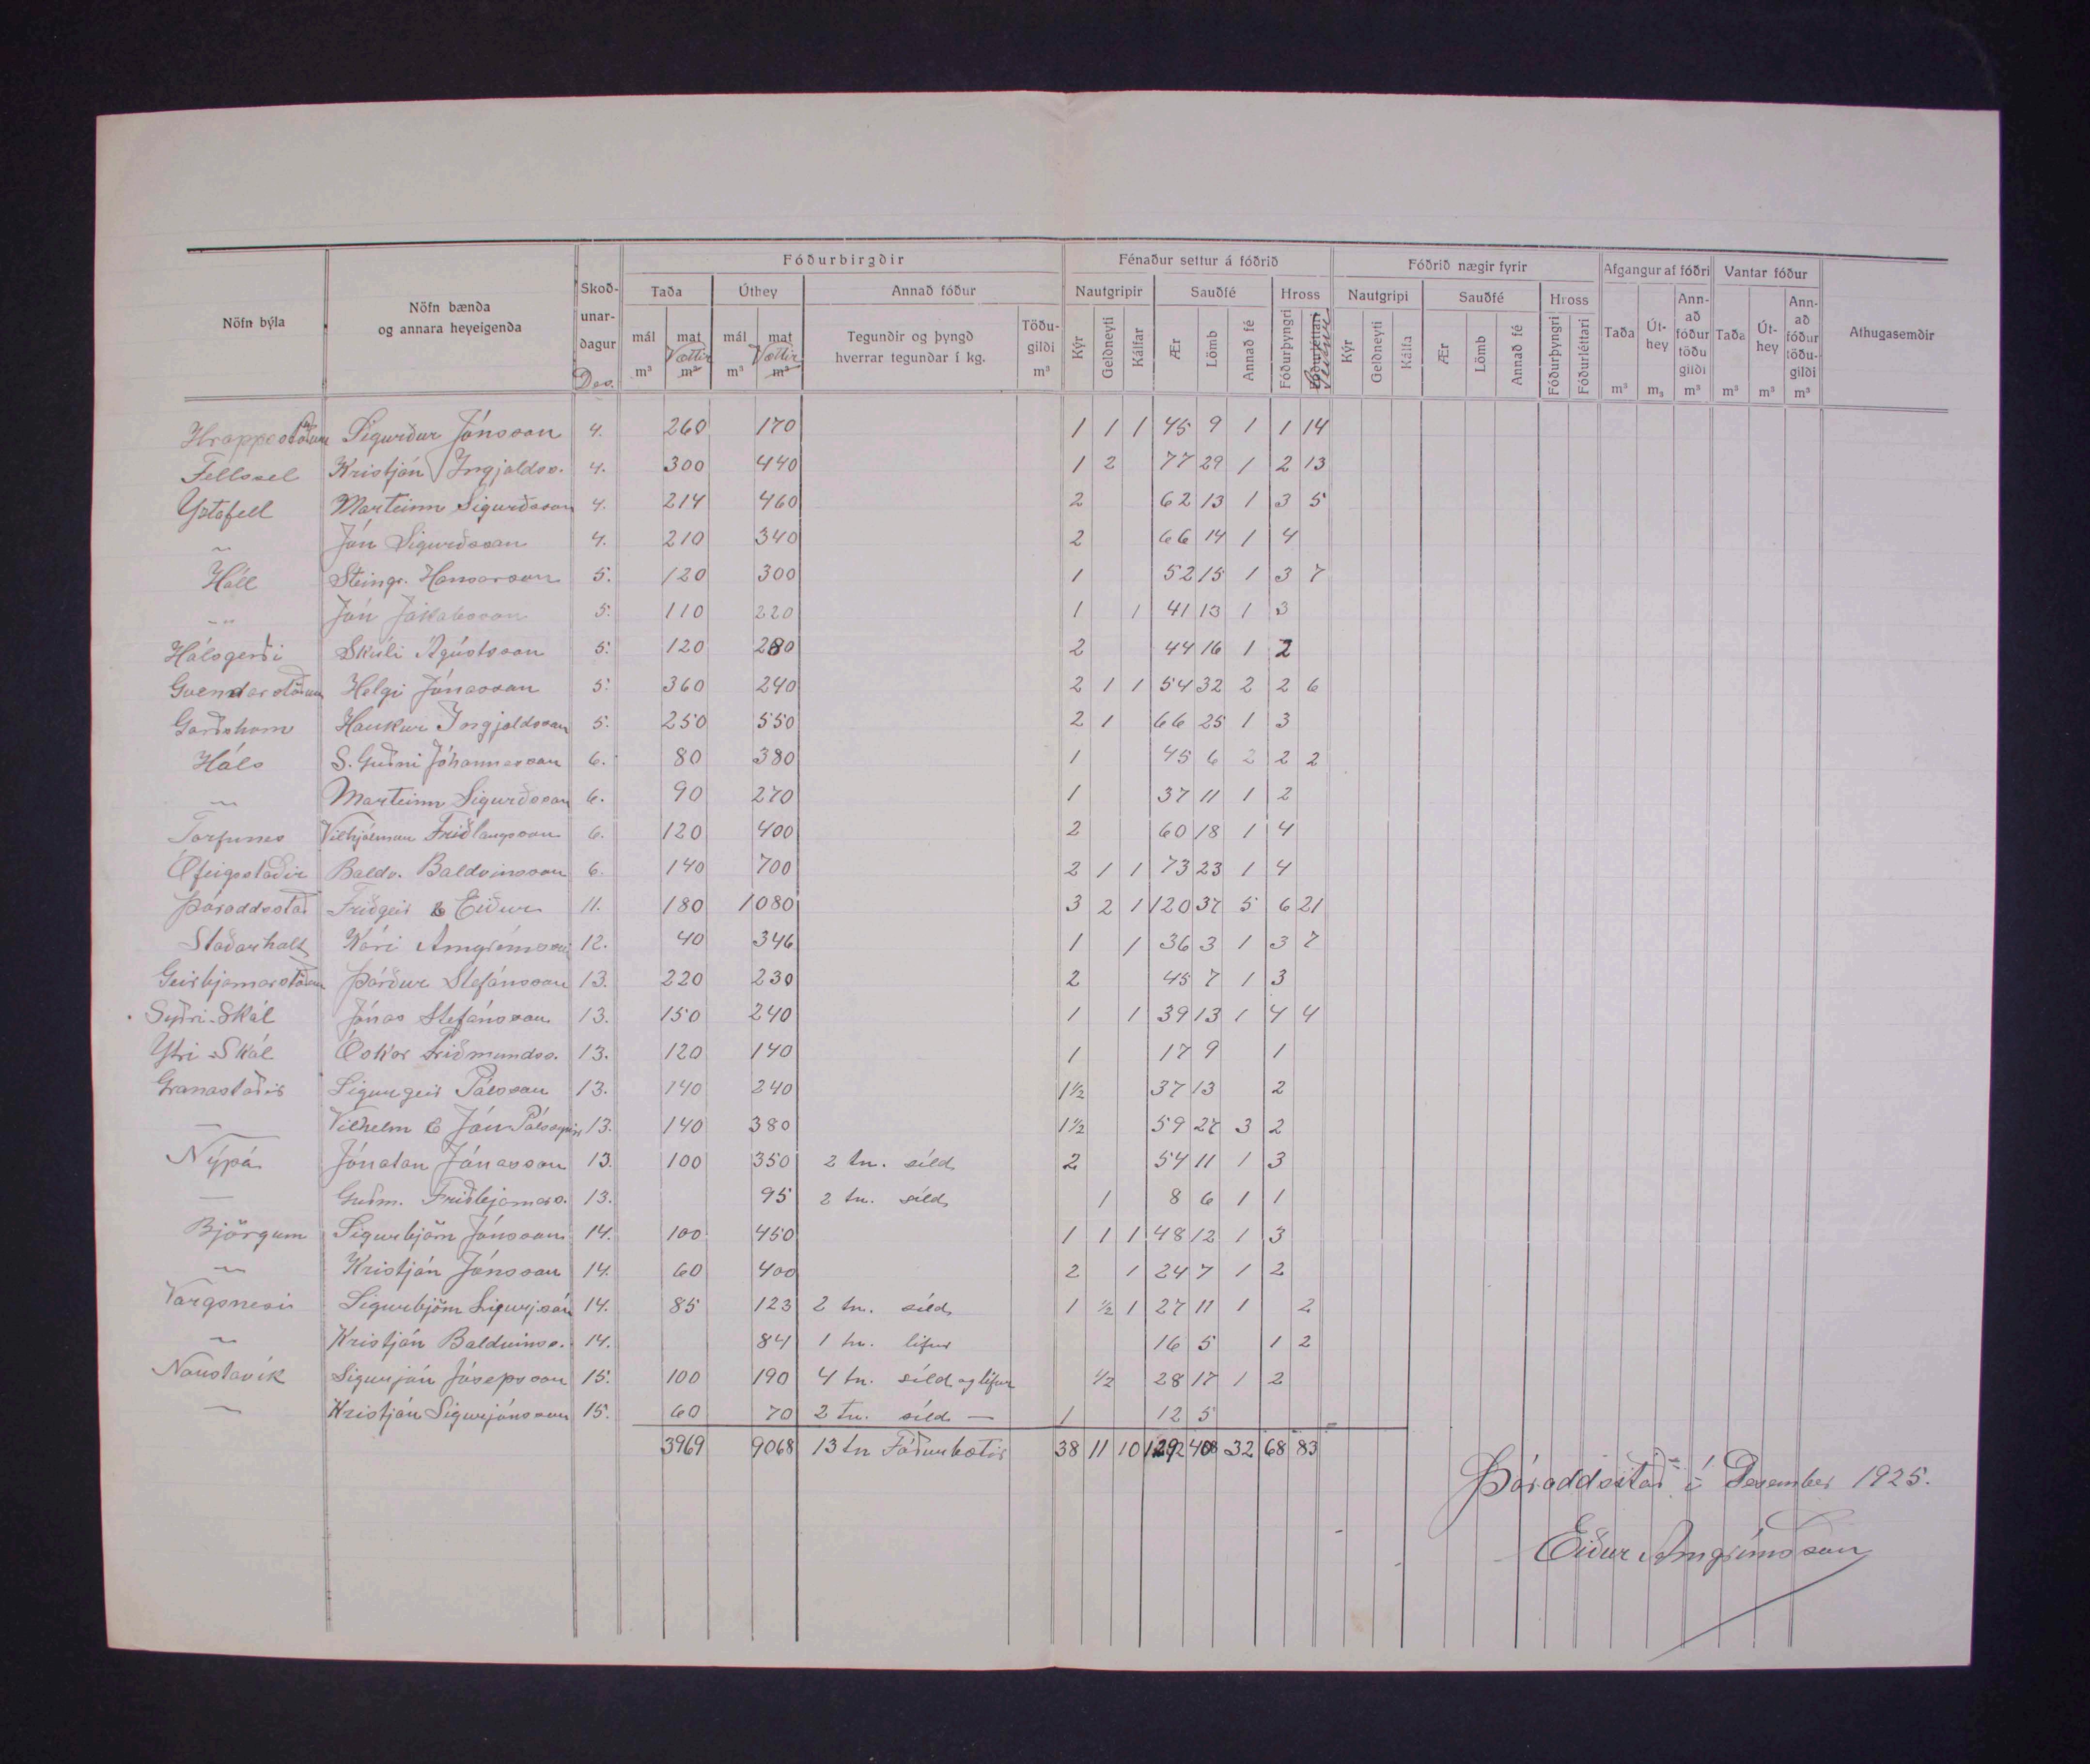 Fóðurbirgðir Fénaður settur á fóðrið Fóðrið nægir fyrir Afgangur af fóðri Vantar fóður
Nöfn býla Nöfn bænda og annara heyeigenda Skoðunardagur Des. Taða Úthey Annað fóður Nautgripir Sauðfé Hross Nautgripi Sauðfé Hross Taða Úthey Annað fóður töðu gildi Taða Úthey Annað fóður töðugildi Athugasemdir
mál m³ mat Vættir m³ mál m³ mat Vættir m³ Tegundir og þyngd hverrar tegundar í kg. Töðugildi m³ Kýr Geldneyti Kálfar Ær Lömb Annað fé Fóðurþyngri Fóðurléttari Kýr Geldneyti Kálfa Ær Lömb Annað fé Fóðurþyngri Fóðurléttari m³ m₃ m³ m³ m³ m³
Hrappsstöðum Sigurður Jónsson 4. 260 170 1 1 1 45 9 1 1 14
Fellssel Kristján Ingjaldss. 4. 300 440 1 2 77 29 1 2 13
Ystafell Marteinn Sigurðsson 4. 214 460 2 62 13 1 3 5
" Jón Sigurðsson 4. 210 340 2 66 14 1 4
Háll Steingr. Hansarson 5. 120 300 1 52 15 1 3 7
" " Jón Jakobsson 5. 110 220 1 1 41 13 1 3
Hálsgerði Skúli Ágústsson 5. 120 280 2 44 16 1 2
Guendarstöðum Helgi Jónasson 5. 360 240 2 1 1 54 32 2 2 6
Garðshorn Haukur Ingjaldsson 5. 250 550 2 1 66 25 1 3
Háls S. Guðni Jóhannesson 6. 80 380 1 45 6 2 2 2
" Marteinn Sigurðsson 6. 90 270 1 37 11 1 2
Torfunes Vilhjálmur Friðlaugsson 6. 120 400 2 60 18 1 4
Ófeigsstaðir Baldv. Baldvinsson 6. 140 700 2 1 1 73 23 1 4
Þóroddsstað Friðgeir & Eiður 11. 180 1080 3 2 1 120 37 5 6 21
Staðarholt Kári Arngrímsson 12. 40 346 1 1 36 3 1 3 7
Geirbjarnarstöðum Þórður Stefánsson 13. 220 230 2 45 7 1 3
Syðri-Skál Jónas Stefánsson 13. 150 240 1 1 39 13 1 4 4
Ytri-Skál Óskar Friðmundss. 13. 120 140 1 17 9 1
Granastaðir Sigurgeir Pálsson 13. 140 240 1½ 37 13 2
— Vilhelm & Jón Pálssynir 13. 140 380 1½ 59 27 3 2
Nýpá Jónatan Jónasson 13. 100 350 2 tn. síld 2 54 11 1 3
— Guðm. Friðbjarnars. 13. 95 2 tn. síld 1 8 6 1 1
Björgum Sigurbjörn Jónsson 14. 100 450 1 1 1 48 12 1 3
" Kristján Jónsson 14. 60 400 2 1 24 7 1 2
Vargsnesi Sigurbjörn Sigurjónss 14. 85 123 2 tn. síld 1 ½ 1 27 11 1 2
" Kristján Baldvinss. 14. 84 1 tn. lifur 16 5 1 2
Naustavík Sigurján Jósepsson 15. 100 190 4 tn. síld og lifur ½ 28 17 1 2
— Kristján Sigurjónsson 15. 60 70 2 tn. síld — 1 12 5
3969 9068 13 tn Fóðurbætir 38 11 10 1292 408 32 68 83
Þóroddsstað í Desember 1925.
Eiður Arngrímsson